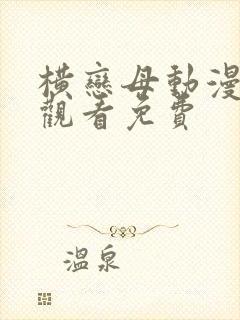 橫戀母動漫
觀看免費
溫泉